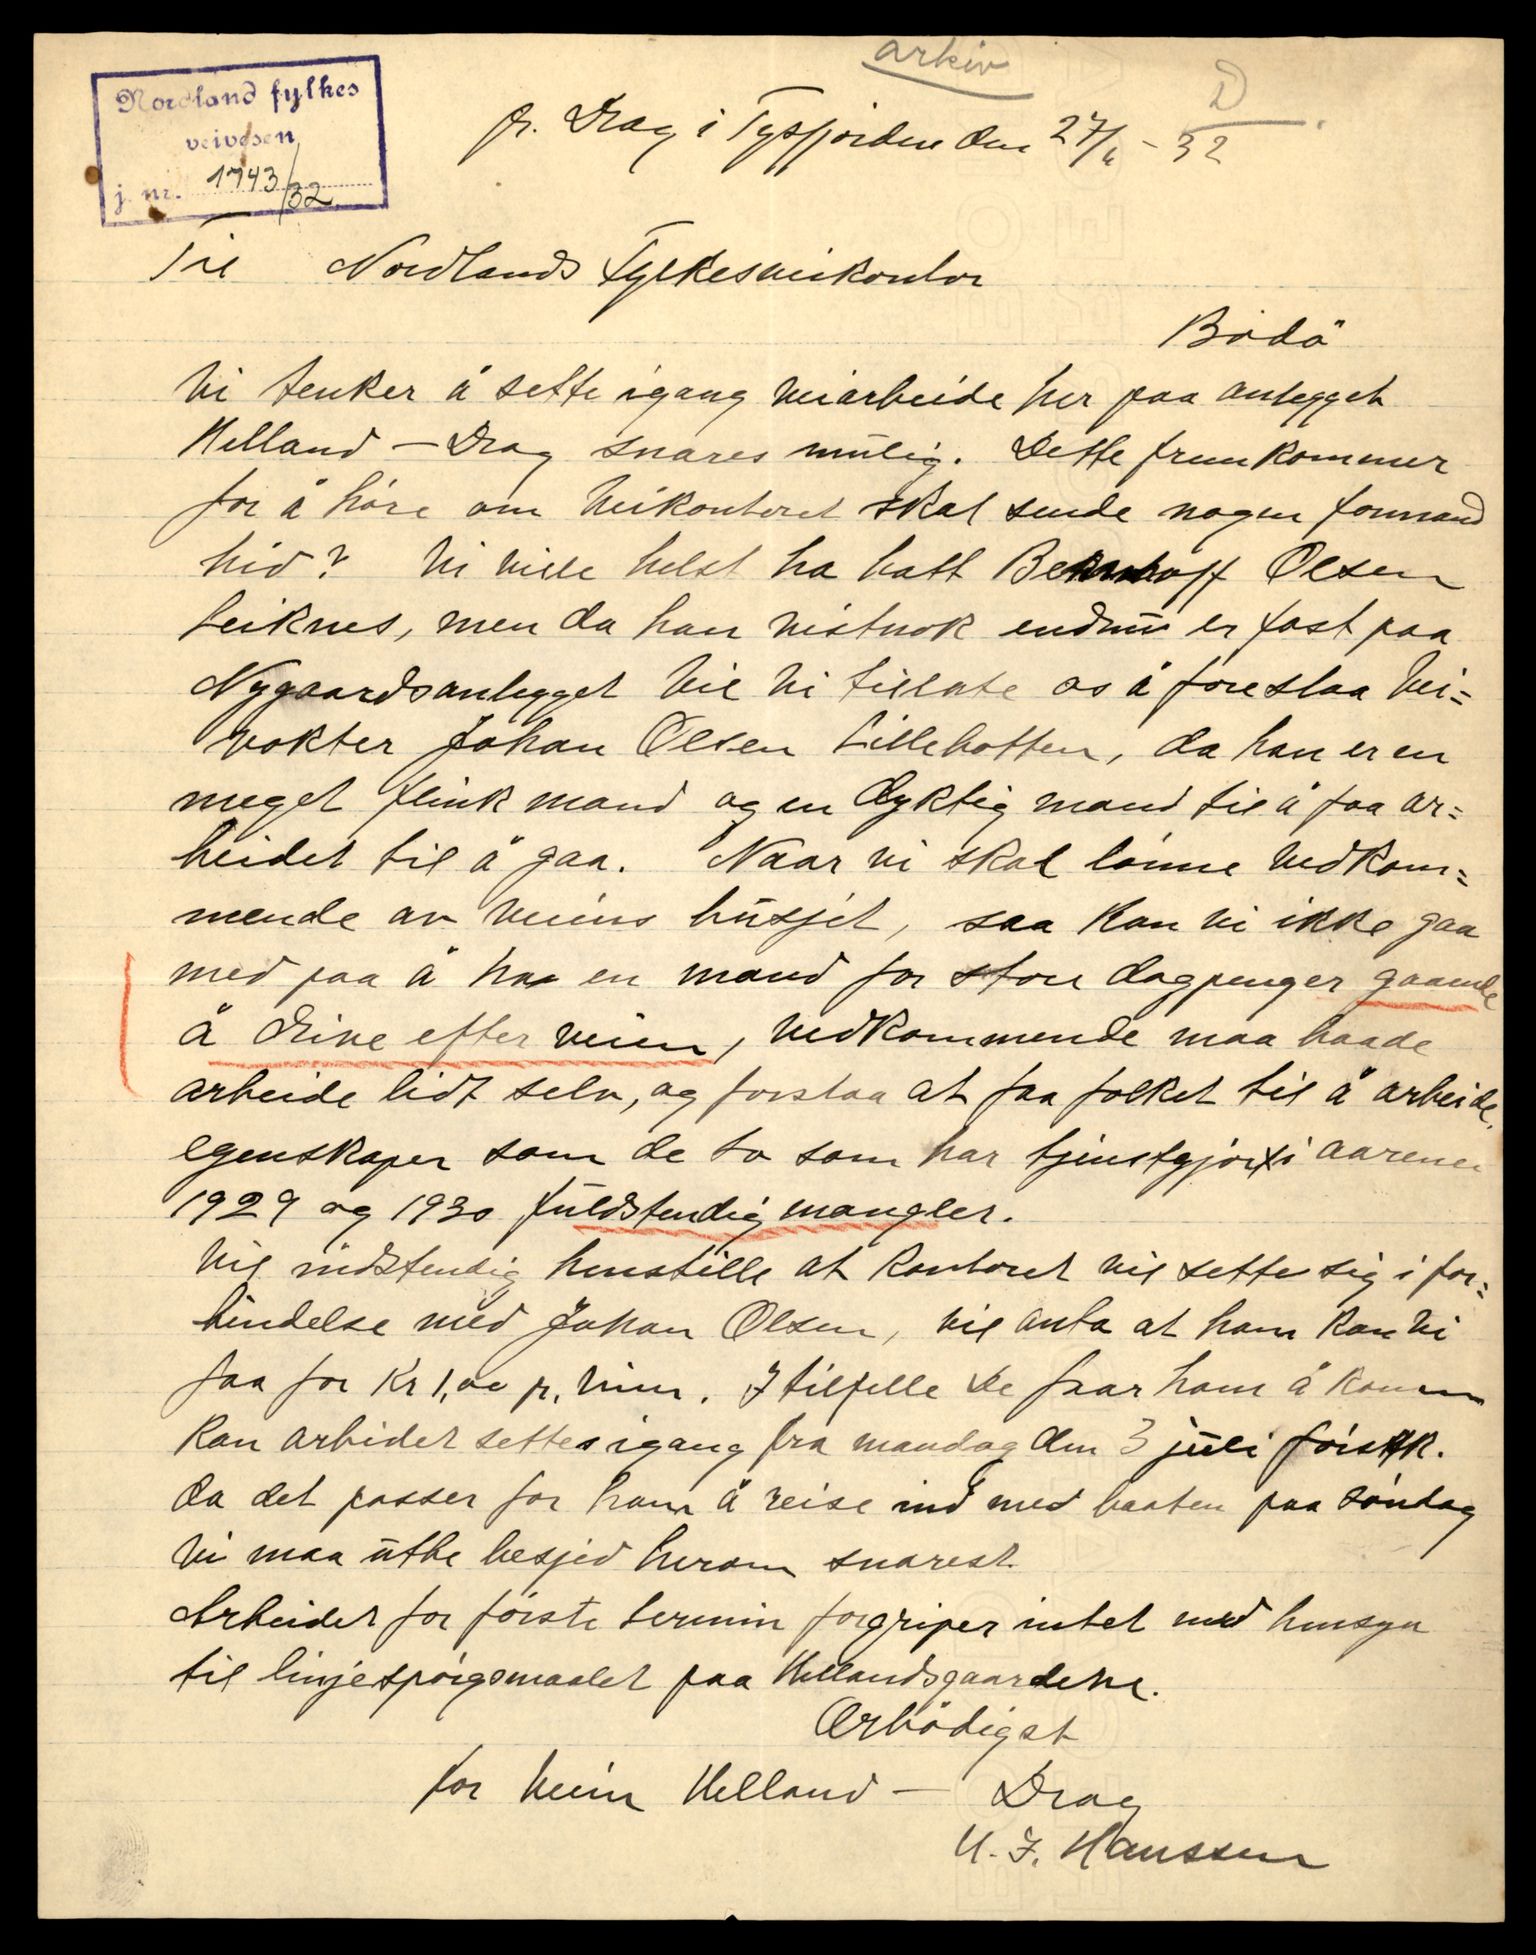 arkiv
D
Nordland fylkes
veivesen
j. nr. 1743/32
p. Drag i Tysfjorden den 27/6 - 32
Til Nordlands Fylkesveikontor
Bodö
Vi tenker å sette igang veiarbeide her paa anlegget
Helland - Drag snares mulig. Dette fremkommer
for å höre om Veikontoret skal sende nogen formand
hid? Vi ville helst ha hatt Olsen
Leiknes, men da han vistnok endnu er fast paa
Nygaardsanlegget vil vi tillate os å foreslaa Vei=
vokter Johan Olsen Lillebotten, da han er en
meget flink mand og en dyktig mand til å faa ar=
beidet til å gaa. Naar vi skal lönne vedkom=
mende av veiens busjet, saa kan vi ikke gaa
med paa å haa en mand for store dagpenger gaaende
å drive efter veien, vedkommende maa baade
arbeide lidt selv, og forstaa at faa folket til å arbeide,
egenskaper som de to som har tjenstgjort i aarene
1929 og 1930 fuldstendig mangler.
Vil indstendig henstille at kontoret vil sette sig i for=
bindelse med Johan Olsen, vil anta at ham kan vi
faa for Kr 1,00 p. time. I tilfelle De faar ham å komme
kan arbeidet settes igang fra mandag den 3 juli förstk.
da det passer for ham å reise ind med baaten paa söndag
Vi maa utbe besjed herom snarest.
Arbeidet for förste termin forgriper intet med hensyn
til linjespörgsmaalet paa Hellandsgaardene.
Ærbödigst
for Veien Helland - Drag
H. J. Hanssen